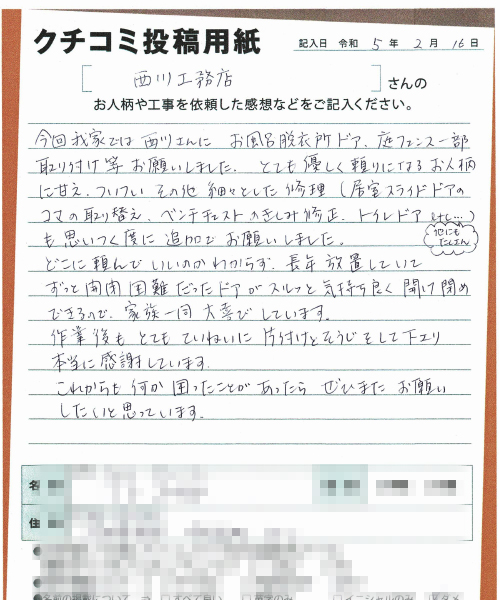 クチコミ投稿用紙
記入日 令和 5 年 2 月 16 日
[ 西川工務店 ] さんの
お人柄や工事を依頼した感想などをご記入ください。
今回我家では 西川さんに お風呂脱衣所ドア、庭フェンス一部
取り付け等 お願いしました。 とても優しく頼りになるお人柄
に甘え、ついつい その他 細々とした 修理 (居室スライドドアの
コマの取り替え、ベンチチェストのきしみ修正、トイレドア etc...)
他にもたくさん
も思いつく度に 追加で お願いしました。
どこに頼んで いいのかわからず、長年 放置していて
ずっと開閉 困難だったドアがスルっと気持ち良く 開け閉め
できるので、家族一同 大喜びしています。
作業後も とても ていねいに 片付けとそうじをして下さり
本当に感謝しています。
これからも 何か 困ったことが あったら ぜひまた お願い
したいと思っています。
名
住